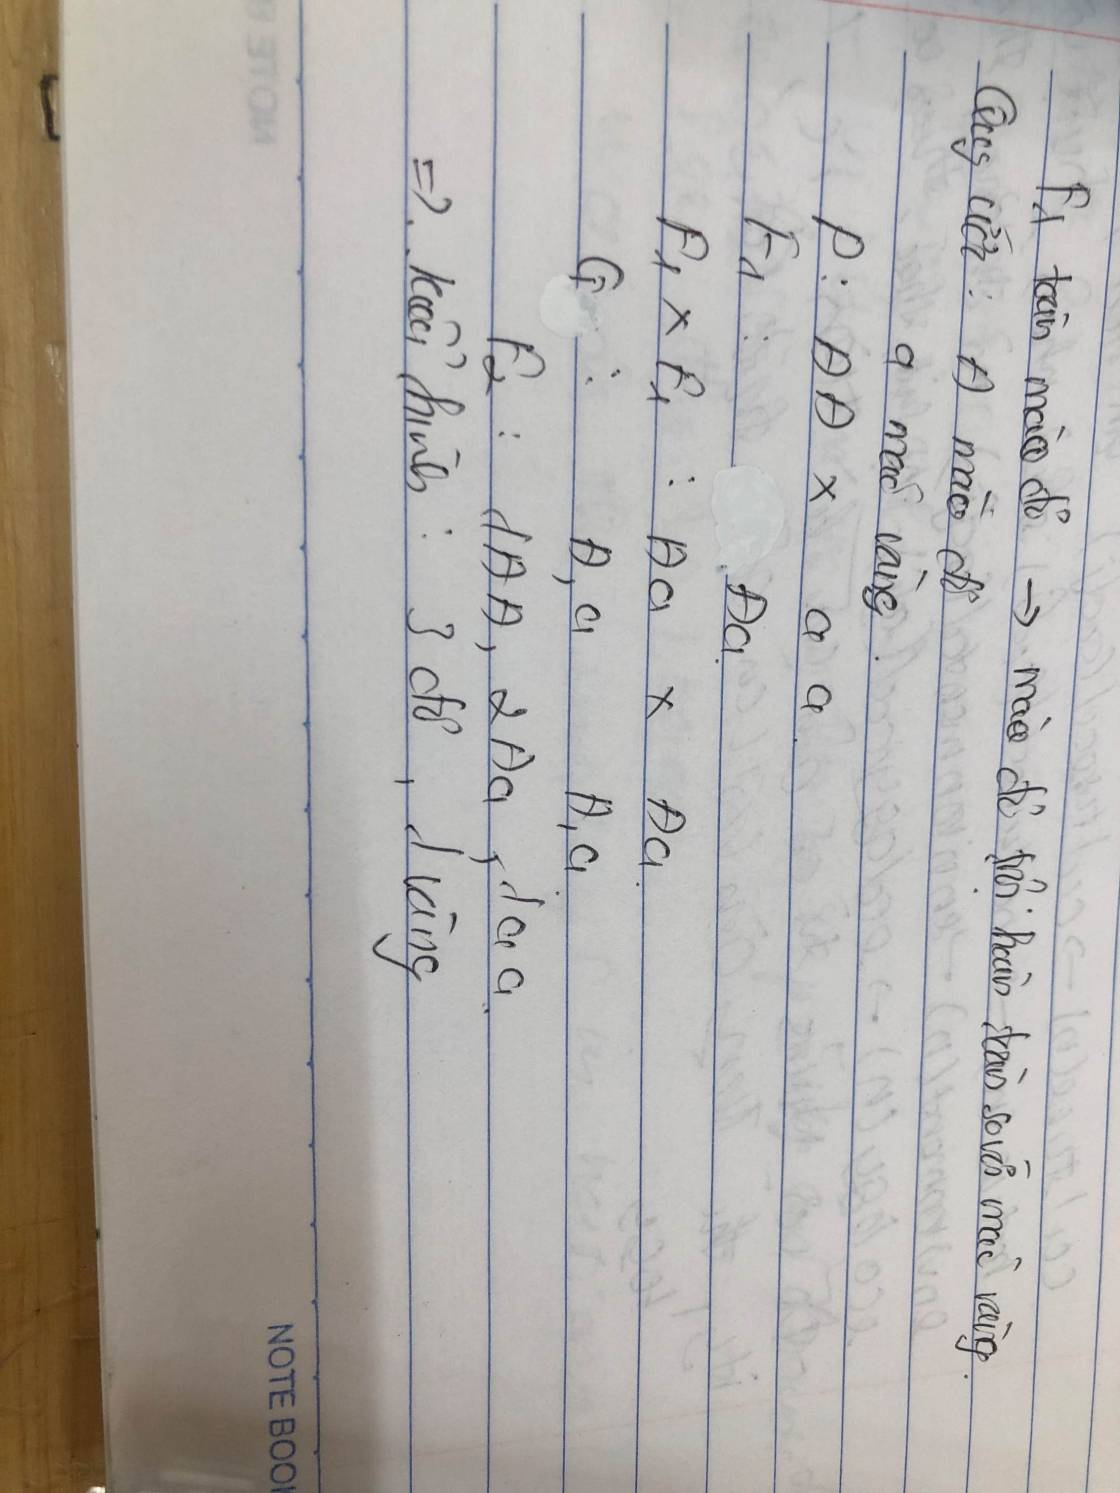 F1 toàn màu đỏ → màu đỏ trội hoàn toàn so với màu vàng.
Quy ước: A màu đỏ
a màu vàng.
P: AA x aa
F1: Aa.
F1 x F1: Aa x Aa.
G: A, a A, a
F2: 1AA, 2Aa, 1aa.
=> kiểu hình: 3 đỏ, 1 vàng
NOTE BOOK